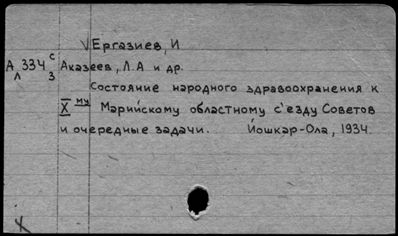 √Ергазиев, И
А 334 с Аказеев, Л.А и др.
л з
Состояние народного здравоохранения к
X му Марийскому областному с'езду Советов
и очередные задачи. Йошкар-Ола, 1934.
X